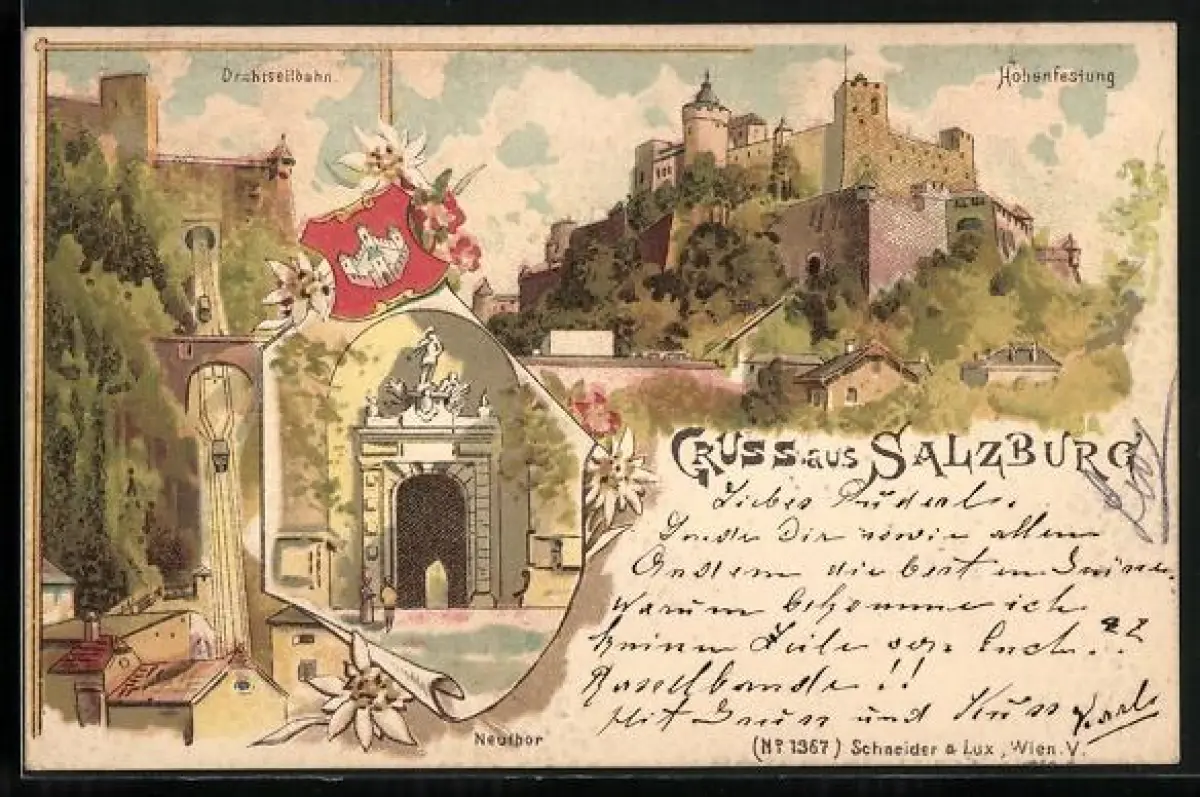 Drahtseilbahn.
Hohenfestung
GRUSS aus SALZBURG
Liebes
Sende Dir sowie allen
Andern die besten Grüsse.
Warum bekomme ich
keine Zeile von Euch.??
Rasselbande!!
Mit Gruss und Kuss Karl
Neuthor
(No. 1367) Schneider & Lux, Wien. V.